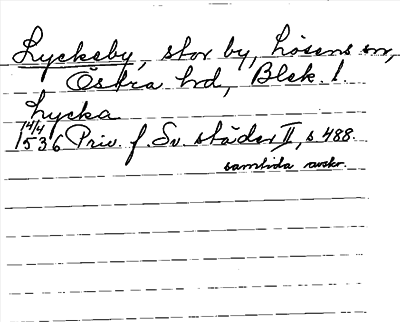 Lyckeby, stor by, Lösens sn,
Östra hd, Blek. l.
Lycka
14/4
1536 Priv. f. Sv. städer II, s 488.
samtida avskr.